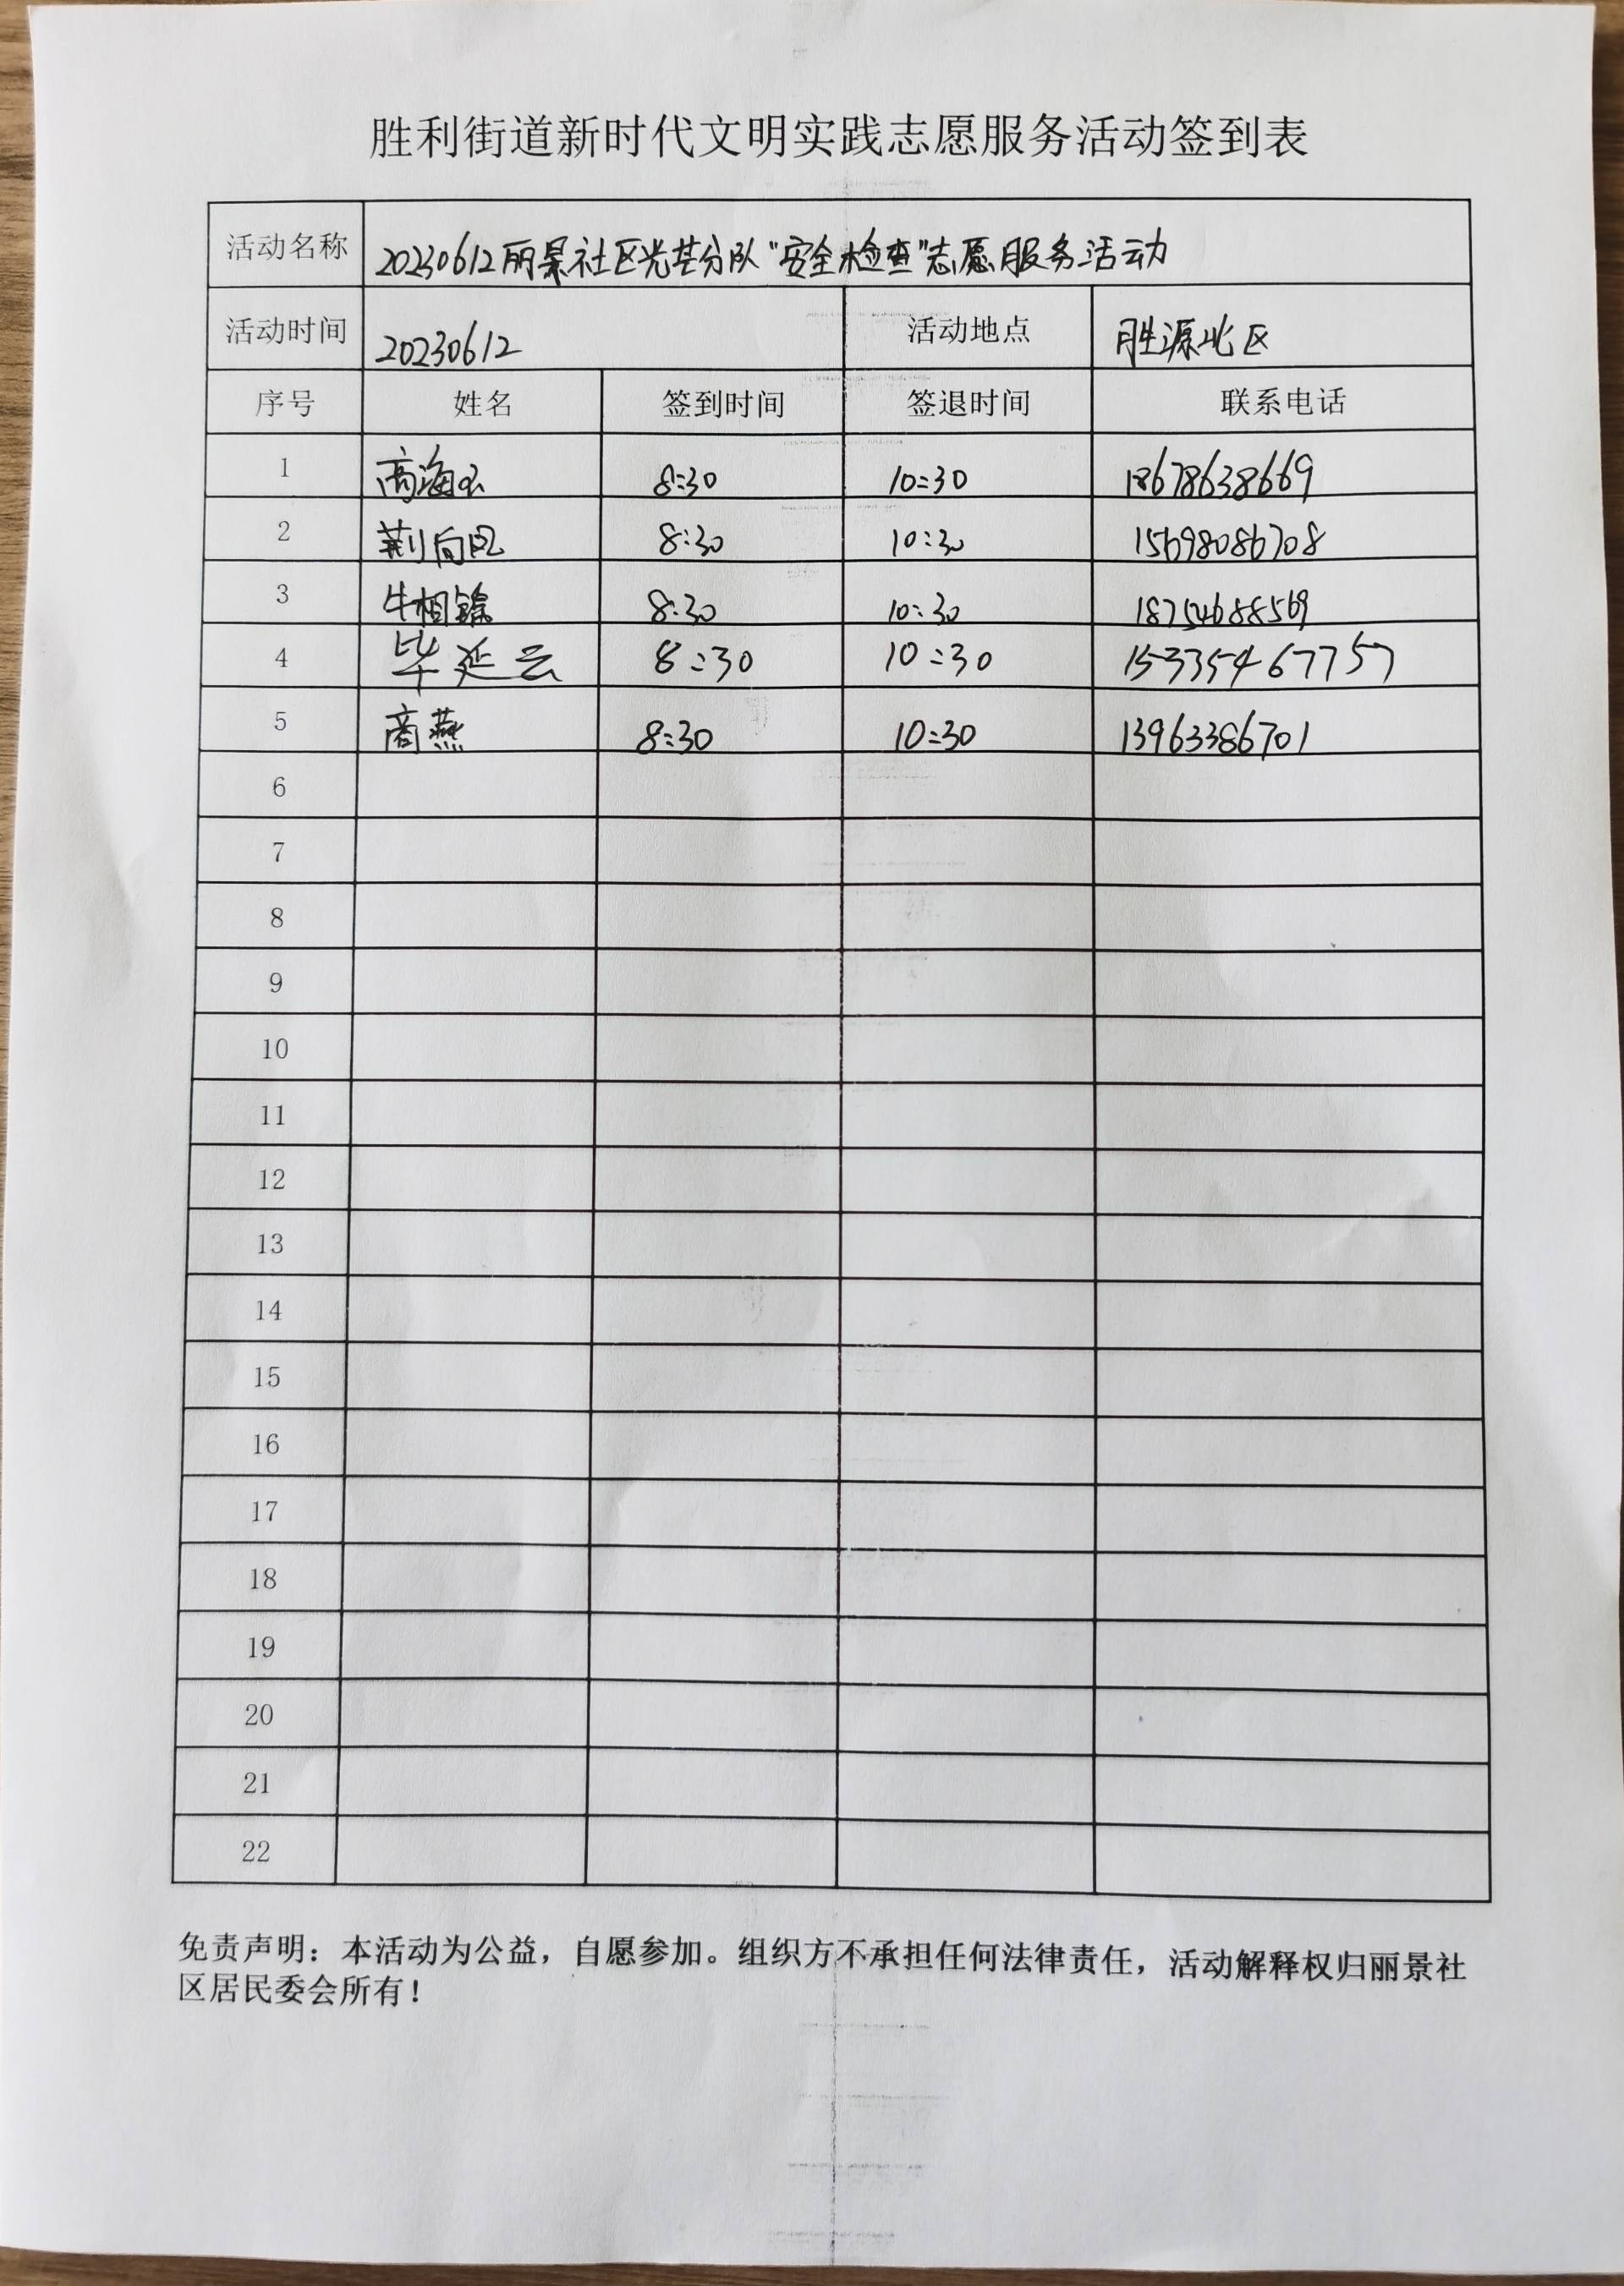 胜利街道新时代文明实践志愿服务活动签到表
活动名称 20230612丽景社区光芒分队"安全检查"志愿服务活动
活动时间 20230612 活动地点 胜源北区
序号 姓名 签到时间 签退时间 联系电话
1 8:30 10:30 18678638669
2 荆向风 8:30 10:30 15698086708
3 牛相 8:30 10:30 18754688569
4 毕延云 8:30 10:30 15335467757
5 商燕 8:30 10:30 13963386701
6
7
8
9
10
11
12
13
14
15
16
17
18
19
20
21
22
免责声明：本活动为公益，自愿参加。组织方不承担任何法律责任，活动解释权归丽景社
区居民委会所有！